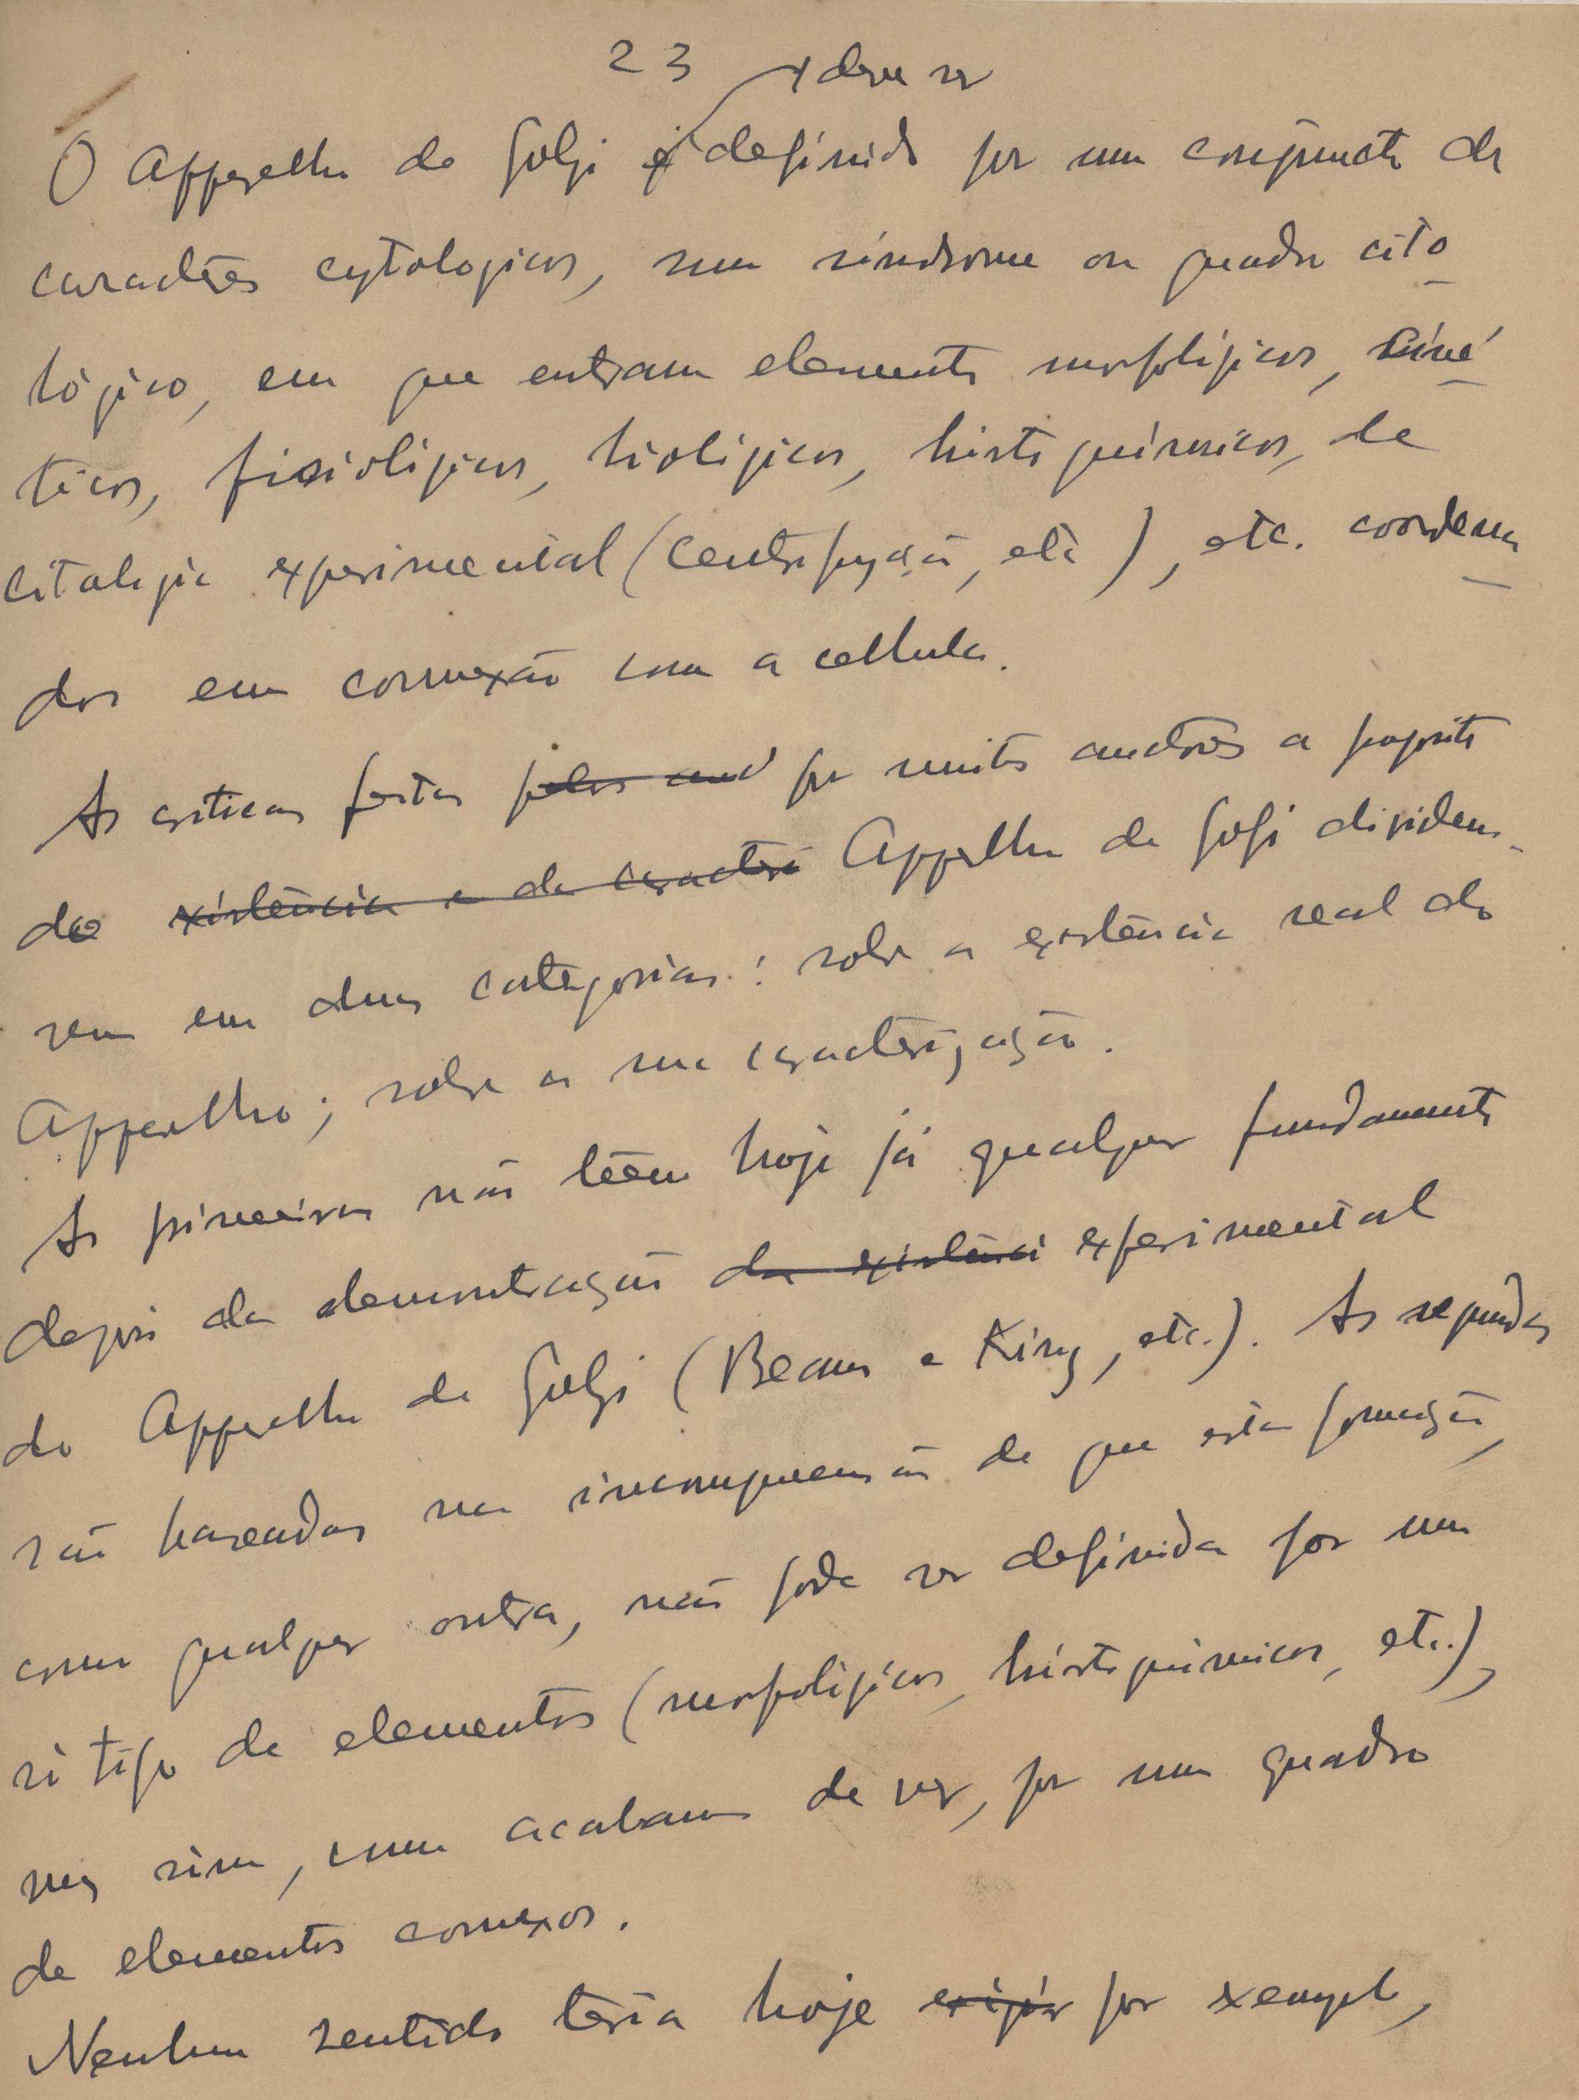 23
deve ser
O Apparelho de Golgi é definido por um conjuncto de
caractéres cytologicos, num sindrome ou quadro cito
lógico, em que entram elementos morfológicos, ciné
ticos, fisiológicos, biológicos, histoquímicos, de
citologia experimental (centrifugação, etc), etc. coordena
dos em connexão com a cellula.
As criticas feitas pelos auct por muitos auctores a proposito
do existência e da caracteri Apparelho de Golgi dividem-
sem em duas categorias: sobre a existência real do
Apparelho; sobre a sua caracterização.
As primeiras não têem hoje já qualquer fundamento
depois da demonstração da existênci experimental
do Apparelho de Golgi (Beams e King, etc.). As segundas
são baseadas na incompreensão de que esta formação,
como qualquer outra, não pode ser definida por um
só tipo de elementos (morfológicos, histoquímicos, etc.),
mas sim, como acabamos de ver, por um quadro
de elementos connexos.
Nenhum sentido teria hoje exigir por exemplo,